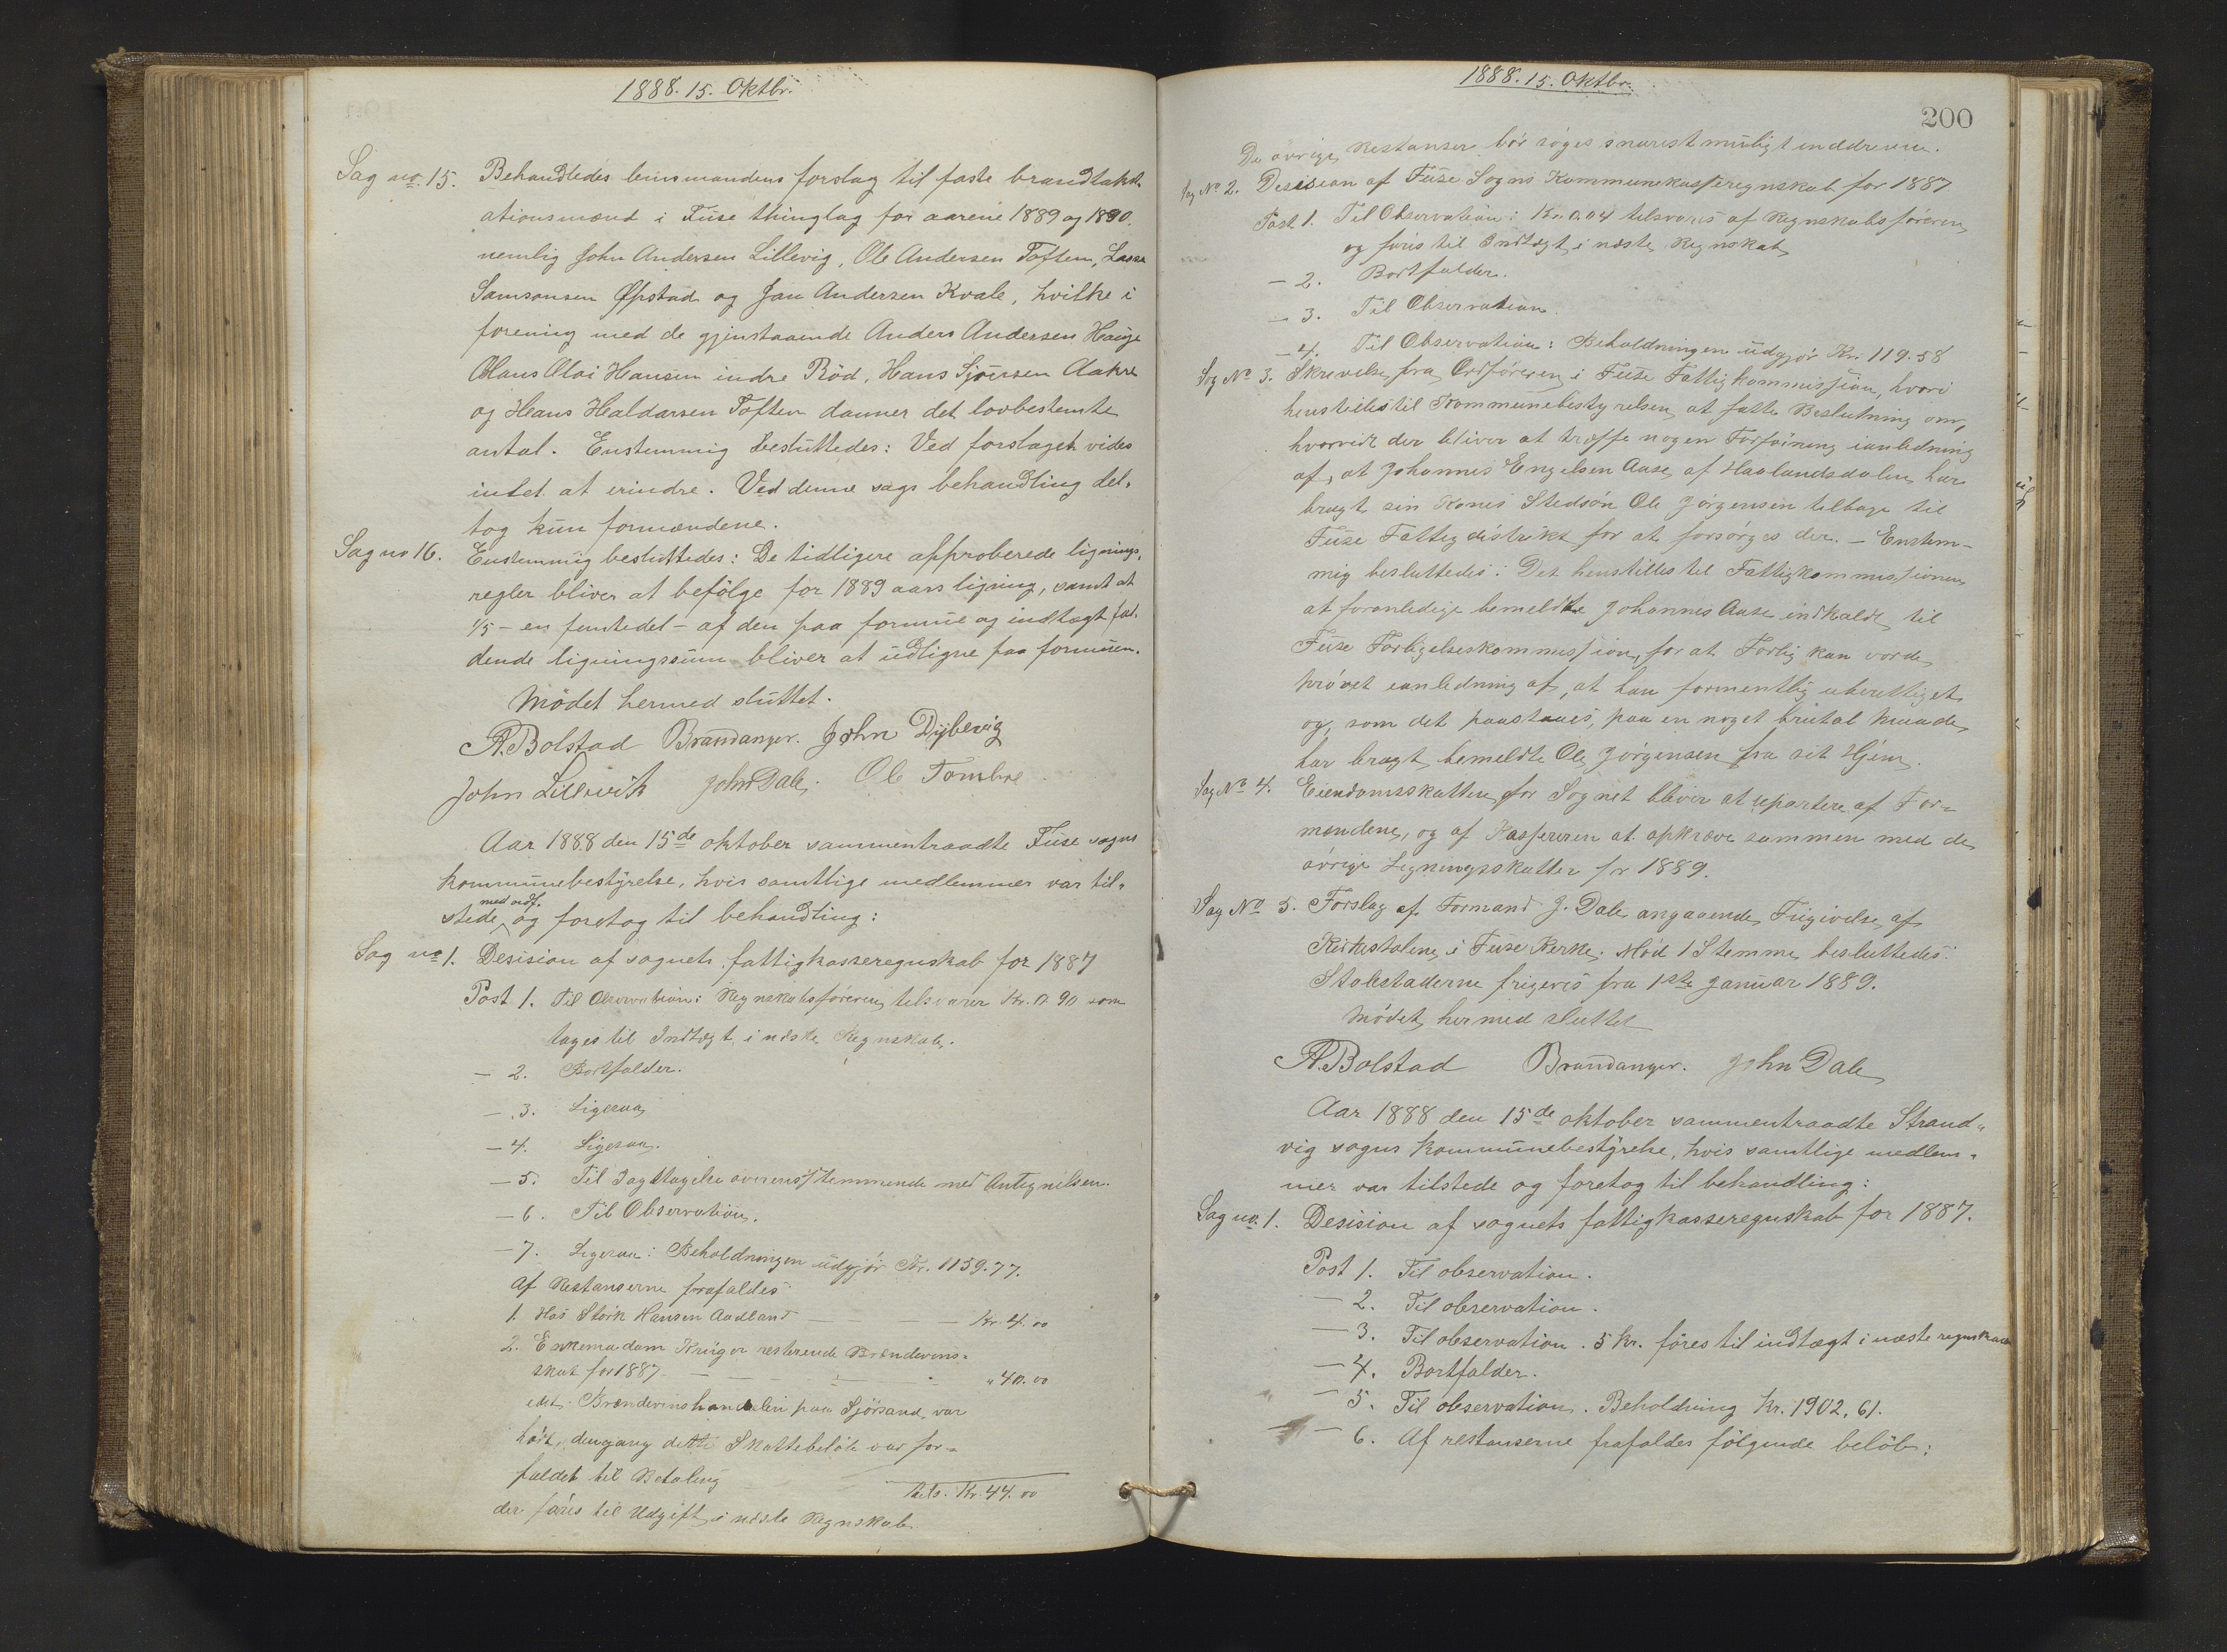 1888. 15. Oktbr.
Sag no. 15. Behandledes lensmandens forslag til faste brandtakst-
ationsmænd i Fuse thinglag for aarene 1889 og 1890.
nemlig John Andersen Lillevig, Ole Andersen Toften, Lasse
Samsonsen Øpstad og Jan Andersen Kvale, hvilke i
forening med de gjenstaaende Anders Andersen Hauge
Claus Olai Hansen indre Röd, Hans Sjursen Aakre
og Hans Haldorsen Toften danner det lovbestemte
antal. Enstemmig besluttedes: Ved forslaget vides
intet at erindre. Ved denne sags behandling del-
tog kun formændene.
Sag no 16. Enstemmig besluttedes: De tidligere approberede lignings-
regler bliver at befölge for 1889 aars ligning, samt at
1/5 - en femtedel - af den paa formue og indtægt fal-
dende ligningssum bliver at udligne paa formuen.
Mödet hermed sluttet.
A. Bolstad Brandanger. John Dybevig
John Lillevik John Dale. Ole Tombre
Aar 1888 den 15de oktober sammentraadte Fuse sogns
kommunebestyrelse, hvis samtlige medlemmer var til-
med ordf.
stede, og foretog til behandling:
Sag no 1. Desision af sognets fattigkasseregnskab for 1887
Post 1. Til Observation: Regnskabsföreren tilsvarer Kr. 0.90 som
tages til Indtægt i næste Regnskab.
- 2. Bortfalder.
- 3. Ligesaa
- 4. Ligesaa.
- 5. Til Iagttagelse overensstemmende med Antegnelsen.
- 6. Til Observation.
- 7. Ligesaa: Beholdningen udgjör Kr. 1159.77.
Af Restanserne frafaldes
1. Hos Störk Hansen Aadland — Kr. 4.00
2. Enkemadam Krüger resterende Brændevins-
skat for 1887 — " 40.00
idet Brændevinshandelen paa Sjörsand var
hört, dengang dette Skattebelöb var for-
faldet til Betaling
Tils. Kr. 44.00
der föres til Udgift i næste Regnskab.
1888. 15. Oktbr.
200
De övrige Restanser bör söges snarest muligt inddrevne.
Sag No 2. Desision af Fuse Sogns Kommunekasseregnskab for 1887
Post 1. Til Observation: Kr. 0.04 tilsvares af Regnskabsföreren
og föres til Indtægt i næste Regnskab
- 2. Bortfalder.
- 3. Til Observation.
- 4. Til Observation: Beholdningen udgjör Kr. 119.58
Sag No 3. Skrivelse fra Ordföreren i Fuse Fattigkommission, hvori
henstilles til Kommunebestyrelsen at fatte Beslutning om,
hvorvidt der bliver at træffe nogen Forföining ianledning
af, at Johannes Engelsen Aase af Haalandsdalen har
bragt sin Kones Stedsön Ole Jörgensen tilbage til
Fuse Fattigdistrikt for at forsörges der. - Enstem-
mig besluttedes: Det henstilles til Fattigkommissionen
at foranledige bemeldte Johannes Aase indkaldt til
Fuse Forligelseskommission, for at Forlig kan vorde
prövet ianledning af, at han formentlig uberettiget
og, som det paastaaes, paa en noget brutal Maade
har bragt bemeldte Ole Jörgensen fra sit Hjem.
Sag No 4. Eiendomsskatten for Sognet bliver at repartere af For-
mændene, og af Kassereren at opkræve sammen med de
övrige Ligningsskatter for 1889.
Sag No 5. Forslag af Formand J. Dale angaaende Frigivelse af
Kirkestolene i Fuse Kirke. Mod 1 Stemme besluttedes:
Stolestaderne frigives fra 1ste Januar 1889.
Mödet hermed sluttet
A. Bolstad Brandanger. John Dale
Aar 1888 den 15de oktober sammentraadte Strand-
vig sogns kommunebestyrelse, hvis samtlige medlem-
mer var tilstede og foretog til behandling:
Sag no. 1. Desision af sognets fattigkasseregnskab for 1887.
Post 1. Til observation.
- 2. Til observation.
- 3. Til observation. 5 kr. föres til indtægt i næste regnskab
- 4. Bortfalder.
- 5. Til observation. Beholdning kr. 1902,61.
- 6. Af restanserne frafaldes fölgende belöb: